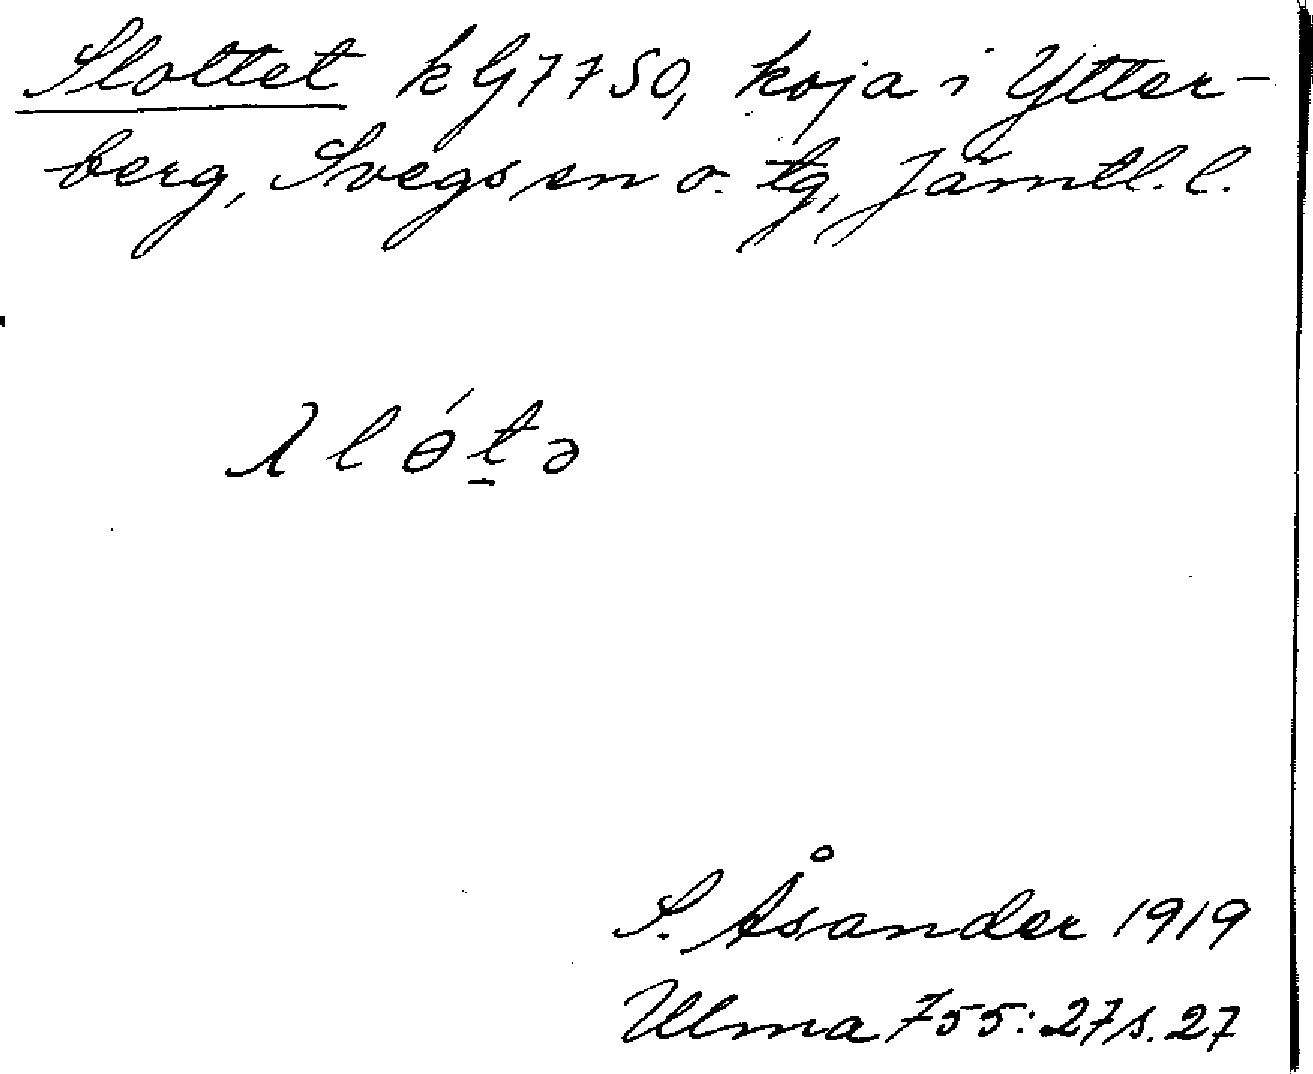 Slottet k G7750, koja i Ytter-
berg, Svegs sn o. tg, Jämtl. l.
λlɵ́t̲ə
S. Åsander 1919
Ulma 755:27 s. 27